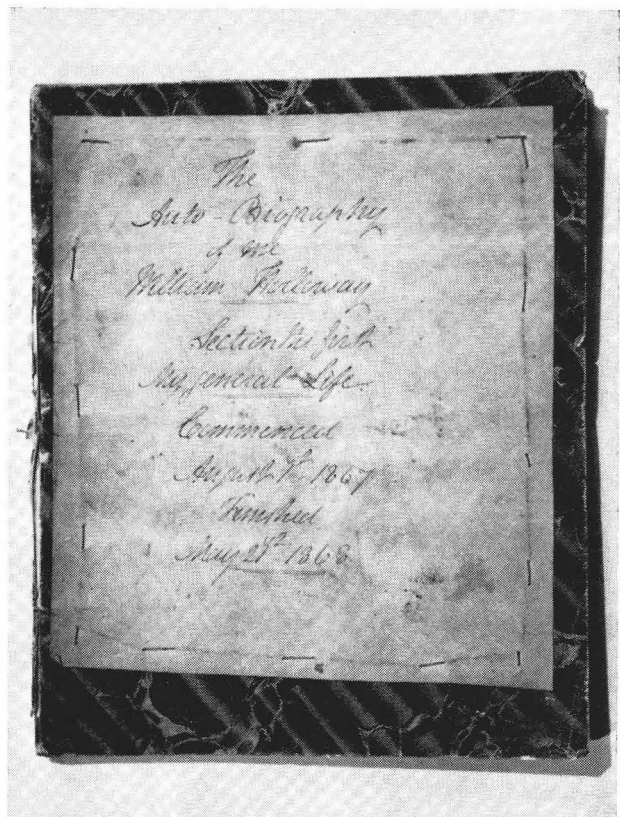 The
Auto-Biography
of one
William Holloway
Section the first
My general Life
Commenced
August 1st 1867
Finished
May 21st 1868